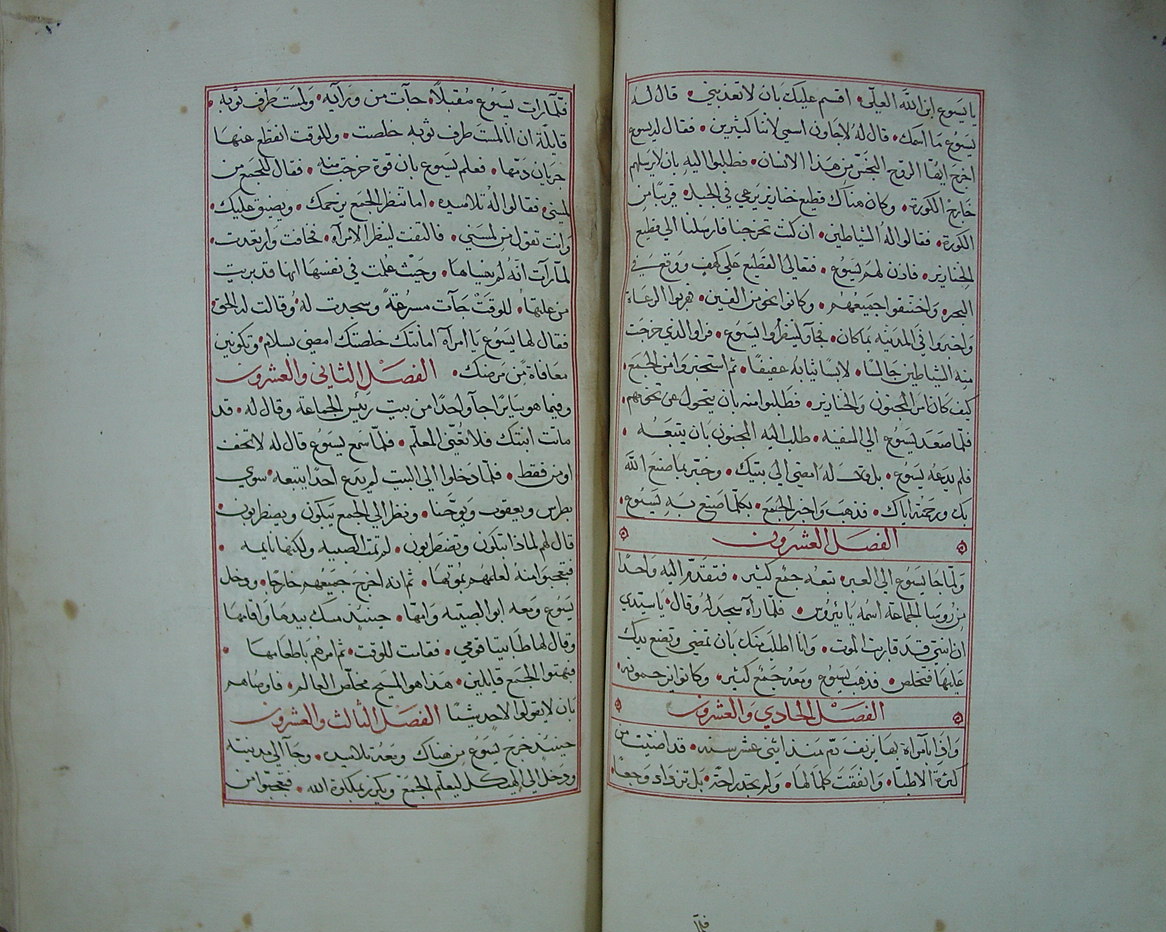 يا يسوع ابن الله العلي • اقسم عليك بان لا تعذبني • قال له
يسوع ما اسمك • قال له لاجاون اسمي لاننا كثيرين • فقال له يسوع
اخرج ايها الروح النجس من هذا الانسان • فطلبوا اليه بان لا يرسلهم
خارج الكورة • وكان هناك قطيع خنازير يرعي في الجبل قريبا من
الكورة • فقالوا له الشياطين • ان كنت تخرجنا فارسلنا الي قطيع
الخنازير • فاذن لهم يسوع • القطيع علي كهف ووقع في
البحر • واختنقوا اجميعهم • وكانوا نحو من الفين • فهربوا الرعاة
واخبروا في المدينة بما كان • فجاو لينظروا يسوع • فراو الذي خرجت
منه الشياطين جالسا • لابسا ثيابه عفيفا • ثم استخبروا من الجمع
كيف كان امر المجنون والخنازير • فطلبوا منه بان يتحول عن تخومهم •
فلما صعد يسوع الي السفينه • طلب اليه المجنون بان يتبعه •
فلم يدعه يسوع • بل وقال له امضي الي بيتك • وخبر بما صنع الله
بك ورحمته اياك • فذهب واخبر الجمع • بكلما صنع به يسوع •
الفصل العشرون
ولما جا يسوع الي العبر تبعه جمع كثير • فتقدم اليه واحدا
من روسا الجماعة اسمه يا يروس • فلما رآه سجد له وقال • يا سيدي
ان ابنتي قد قاربت الموت • وانا اطلب منك بان تمضي وتضع يدك
عليها فتخلص • فذهب يسوع ومعه جمع كثير • وكانوا يزحمونه
الفصل الحادي والعشرون
واذا بامراة بها نزيف دم منذ اثني عشر سنه • قد اضنيت من
كثرة الاطبا • وانفقت كلما لها • ولم تجد راحة • بل تزداد وجعا •
فلما
فلما رات يسوع مقبلا • جآت من ورآيه • ولمست طرف ثوبه •
قايلة ان انا لمست طرف ثوبه خلصت • وللوقت انقطع عنها
جريان دمها • فعلم يسوع بان قوة خرجت منه • فقال للجمع من
لمسني • فقالوا له تلاميده • اما تنظر الجمع يزحمك • ويضيق عليك •
وانت تقول من لمسني • فالتفت لينظر الامرآه • فخافت وارتعدت •
لما رآت انه لم ينساها • وحيث علمت في نفسها انها قد بريت
من علتها • للوقت جآت مسرعة وسجدت له • وقالت له الحق •
فقال لها يسوع يا امرآه امانتك خلصتك امضي بسلام • وتكوني
معافاة من مرضك • الفصل الثاني والعشرون
وفيما هو سايرا جاو احدا من بيت رييس الجماعة وقال له • قد
ماتت ابنتك فلا تعني المعلم • فلما سمع يسوع قال له لا تخف
اومن فقط • فلما دخلوا الي البيت لم يدع احدا يتبعه • سوي
بطرس ويعقوب ويوحنا • ونظر الي الجمع يبكون ويضطربون •
قال لهم لماذا تبكون وتضطربون • لم تمت الصبيه ولكنها نايمه •
فتعجبوا منه لعلمهم بموتها • ثم انه اخرج جميعهم خارجا • ودخل
يسوع ومعه ابو الصبيه وامها • حينيد مسك بيدها واقامها
وقال لها طابيتا قومي • فقامت للوقت • ثم امرهم باطعامها •
فبهتوا الجمع قايلين • هذا هو المسيح مخلص العالم • فاوصاهم
بان لا يقولوا لاحد شيئا الفصل الثالث والعشرون
حينيد خرج يسوع من هناك ومعه تلاميده • وجا الي مدينته
ودخل الي الهيكل ليعلم الجمع ويكرز بملكوة الله • فتعجبوا من